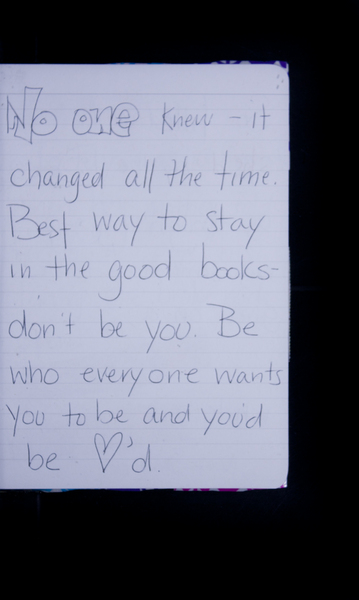 No one knew - it
changed all the time.
Best way to stay
in the good books-
don't be you. Be
who everyone wants
you to be and you'd
be ♡'d.